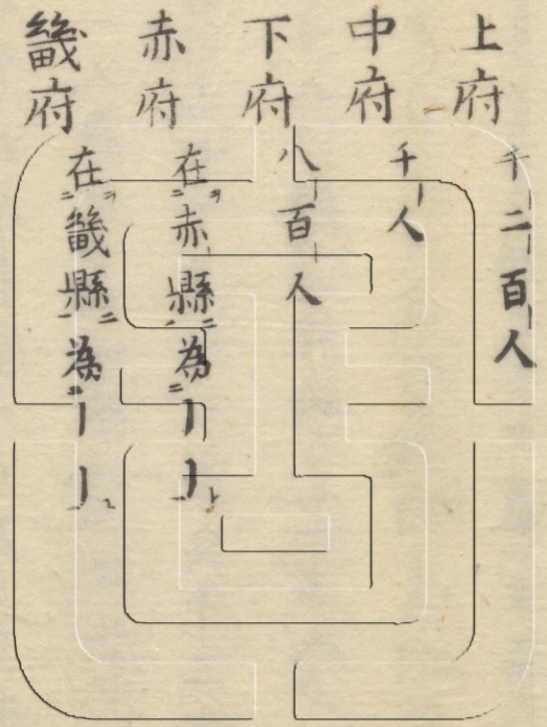 上府千二百人
中府千人
下府八百人
赤府在赤縣為〡〡
畿府在畿縣為〡〡